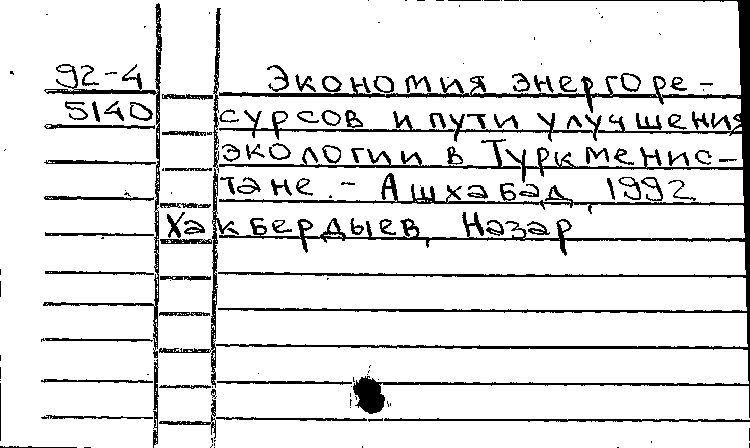 92-4 Экономия энергоре-
5140 сурсов и пути улучшения
экологии в Туркменис-
тане. - Ашхабад, 1992.
Хакбердыев, Назар